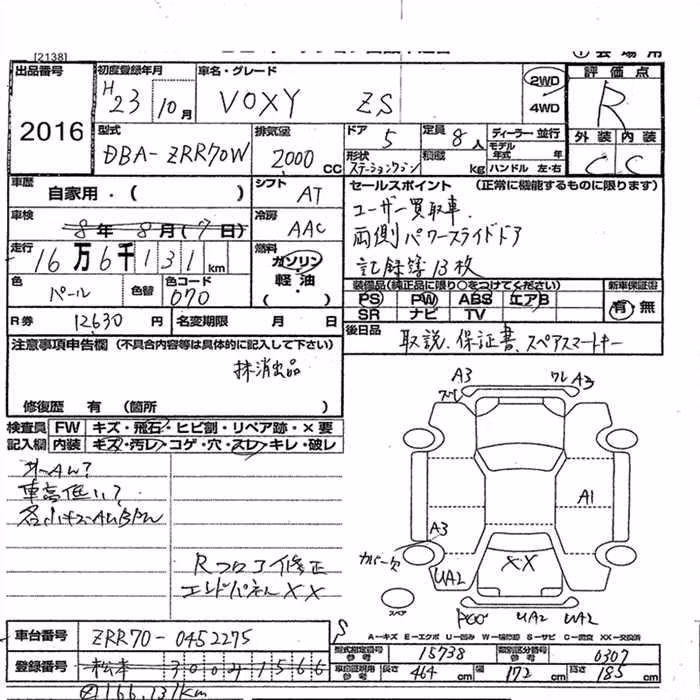 [2138]
出品番号
2016
初度登録年月
H23 10月
車名・グレード
VOXY ZS
2WD
4WD
評価点
R
外装 内装
C C
型式
DBA-ZRR70W
排気量
2000 CC
ドア 5
形状
ステーションワゴン
定員 8人
積載 kg
ディーラー・並行
モデル年式 年
ハンドル 左・右
車歴
自家用・( )
シフト
AT
セールスポイント (正常に機能するものに限ります)
ユーザー買取車
両側パワースライドドア
記録簿13枚
車検
8年 8月(7日)
冷房
AAC
走行
16万6千131km
燃料
ガソリン
軽油
・( )
色
パール
色替
色コード
070
装備品(純正品に限り○をつけてください)
PS PW ABS エアB
SR ナビ TV
新車保証書
有・無
R券 12630円
名変期限 月 日
後日品
取説、保証書、スペアスマートキー
注意事項申告欄 (不具合内容等は具体的に記入して下さい)
抹消出品
修復歴 有 (箇所 )
検査員記入欄
FW キズ・飛石・ヒビ割・リペア跡・×要
内装 キズ・汚レ・コゲ・穴・スレ・キレ・破レ
車高低い?
Rフロア修正
エンドパネル××
A3
A3
A1
A3
UA2
XX
UA2
UA2
スペア
S
A-キズ E-エクボ U-凹み W-補修跡 S-サビ C-腐食 XX-交換済
車台番号
ZRR70-0452275
登録番号
松本 300 ・1566
型式指定番号 参考
15738
類別区分番号 参考
0307
車検証明記載 参考
長さ 464cm
幅 172cm
高さ 185cm
166,131km